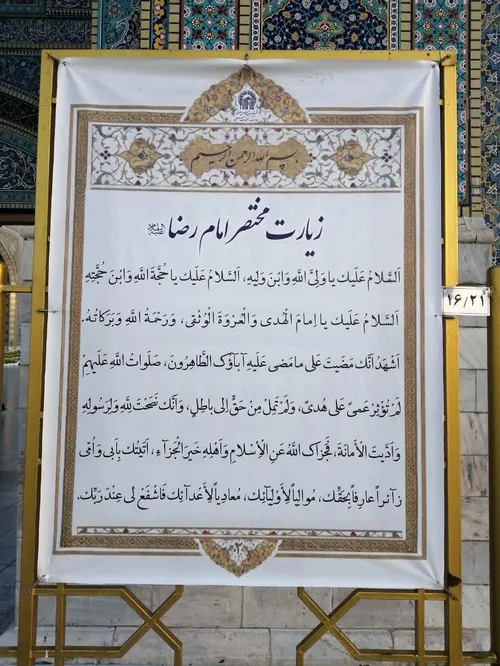 بسم الله الرحمن الرحیم
زیارت مختصر امام رضا علیه‌السلام
اَلسَّلامُ عَلَیْكَ یا وَلِیَّ اللّٰهِ وَابْنَ وَلِیِّهِ، اَلسَّلامُ عَلَیْكَ یا حُجَّةَ اللّٰهِ وَابْنَ حُجَّتِهِ
اَلسَّلامُ عَلَیْكَ یا اِمامَ الْهُدی وَالْعُرْوَةِ الْوُثْقی، وَرَحْمَةُ اللّٰهِ وَبَرَكاتُهُ.
اَشْهَدُ اَنَّكَ مَضَیْتَ عَلی ما مَضی عَلَیْهِ آباؤُكَ الطّاهِرُونَ، صَلَواتُ اللّٰهِ عَلَیْهِمْ
لَمْ تُؤْثِرْ عَمیً عَلی هُدیً، وَلَمْ تَمِلْ مِنْ حَقٍّ اِلی باطِلٍ، وَاَنَّكَ نَصَحْتَ لِلّٰهِ وَلِرَسُولِهِ
وَاَدَّیْتَ الْاَمانَةَ، فَجَزاكَ اللّٰهُ عَنِ الْاِسْلامِ وَاَهْلِهِ خَیْرَ الْجَزآءِ، اَتَیْتُكَ بِاَبی وَاُمّی
زآئِراً عارِفاً بِحَقِّكَ، مُوالِیاً لِاَوْلِیآئِكَ، مُعادِیاً لِاَعْدآئِكَ فَاشْفَعْ لی عِنْدَ رَبِّكَ.
۱۶/۲۱